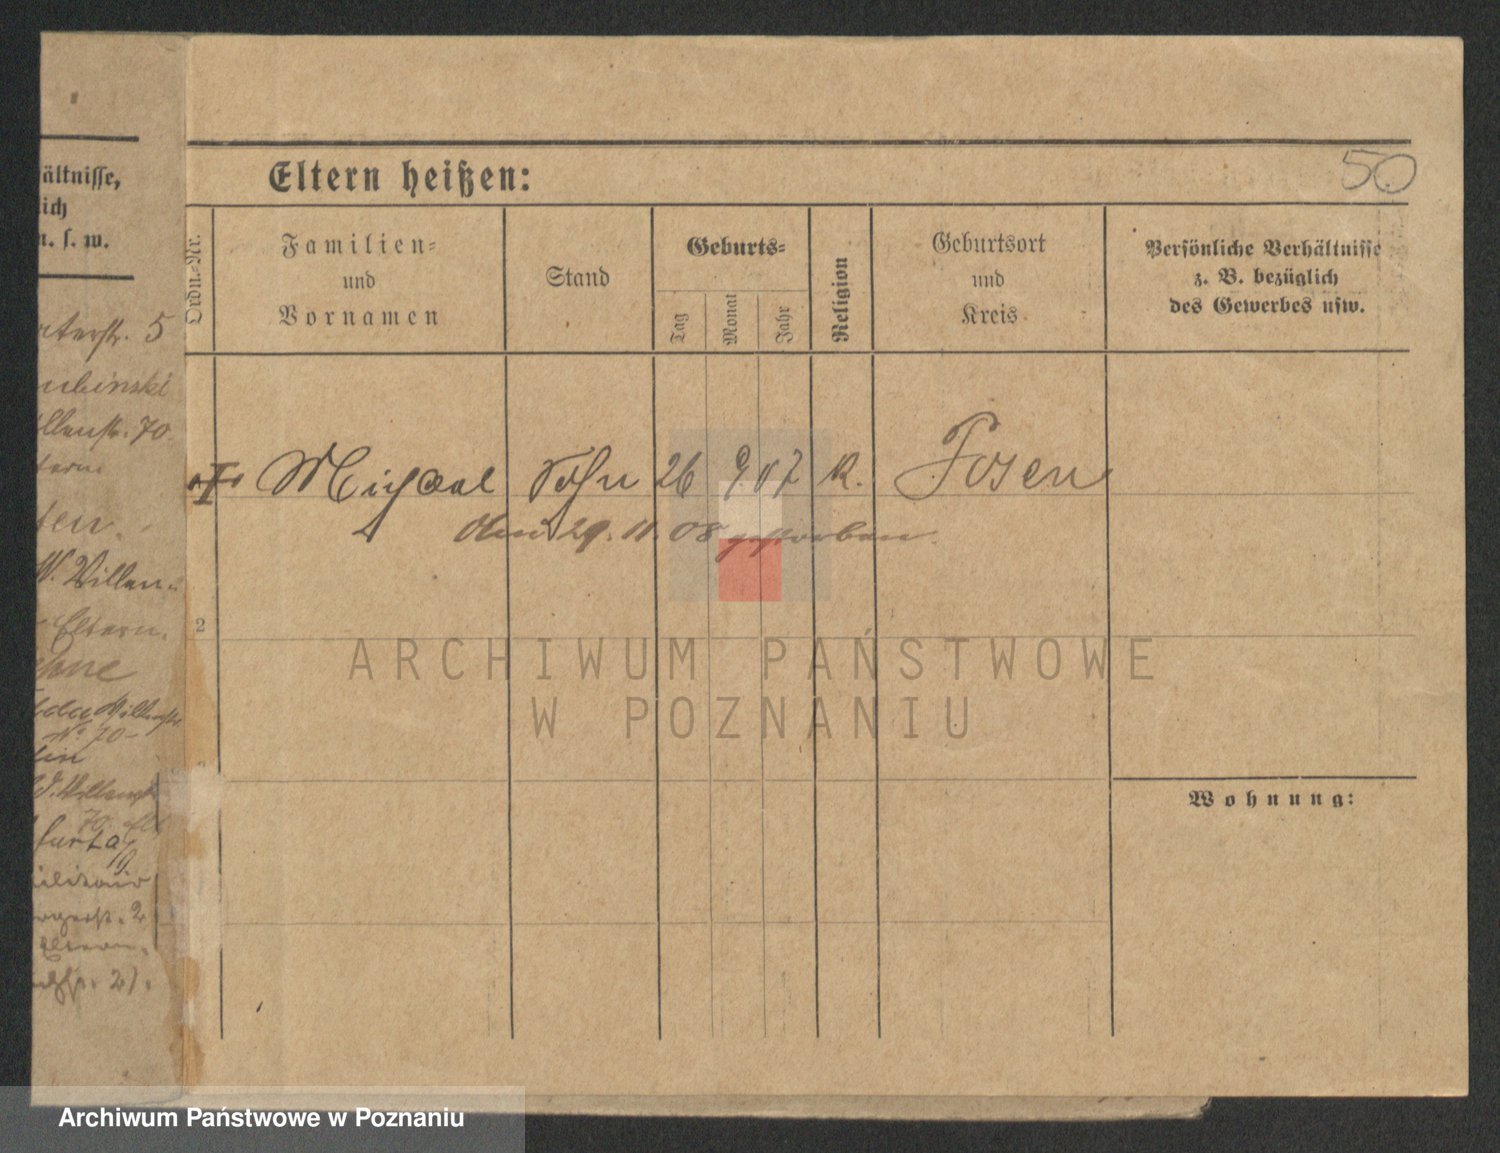 ältnisse,
lich
n. s. w.
terstr. 5
ubinski
llenstr. 70.
W. Villen-
Eltern.
No 70-
Eltern heißen:
50
Ordn.-Nr.
Familien-
und
Vornamen
Stand
Geburts-
Tag
Monat
Jahr
Religion
Geburtsort
und
Kreis
Persönliche Verhältnisse
z. B. bezüglich
des Gewerbes usw.
Michael Sohn 26 9 07 K. Posen
den 29. 11. 08 gestorben.
2
Wohnung:
ARCHIWUM PAŃSTWOWE
W POZNANIU
Archiwum Państwowe w Poznaniu